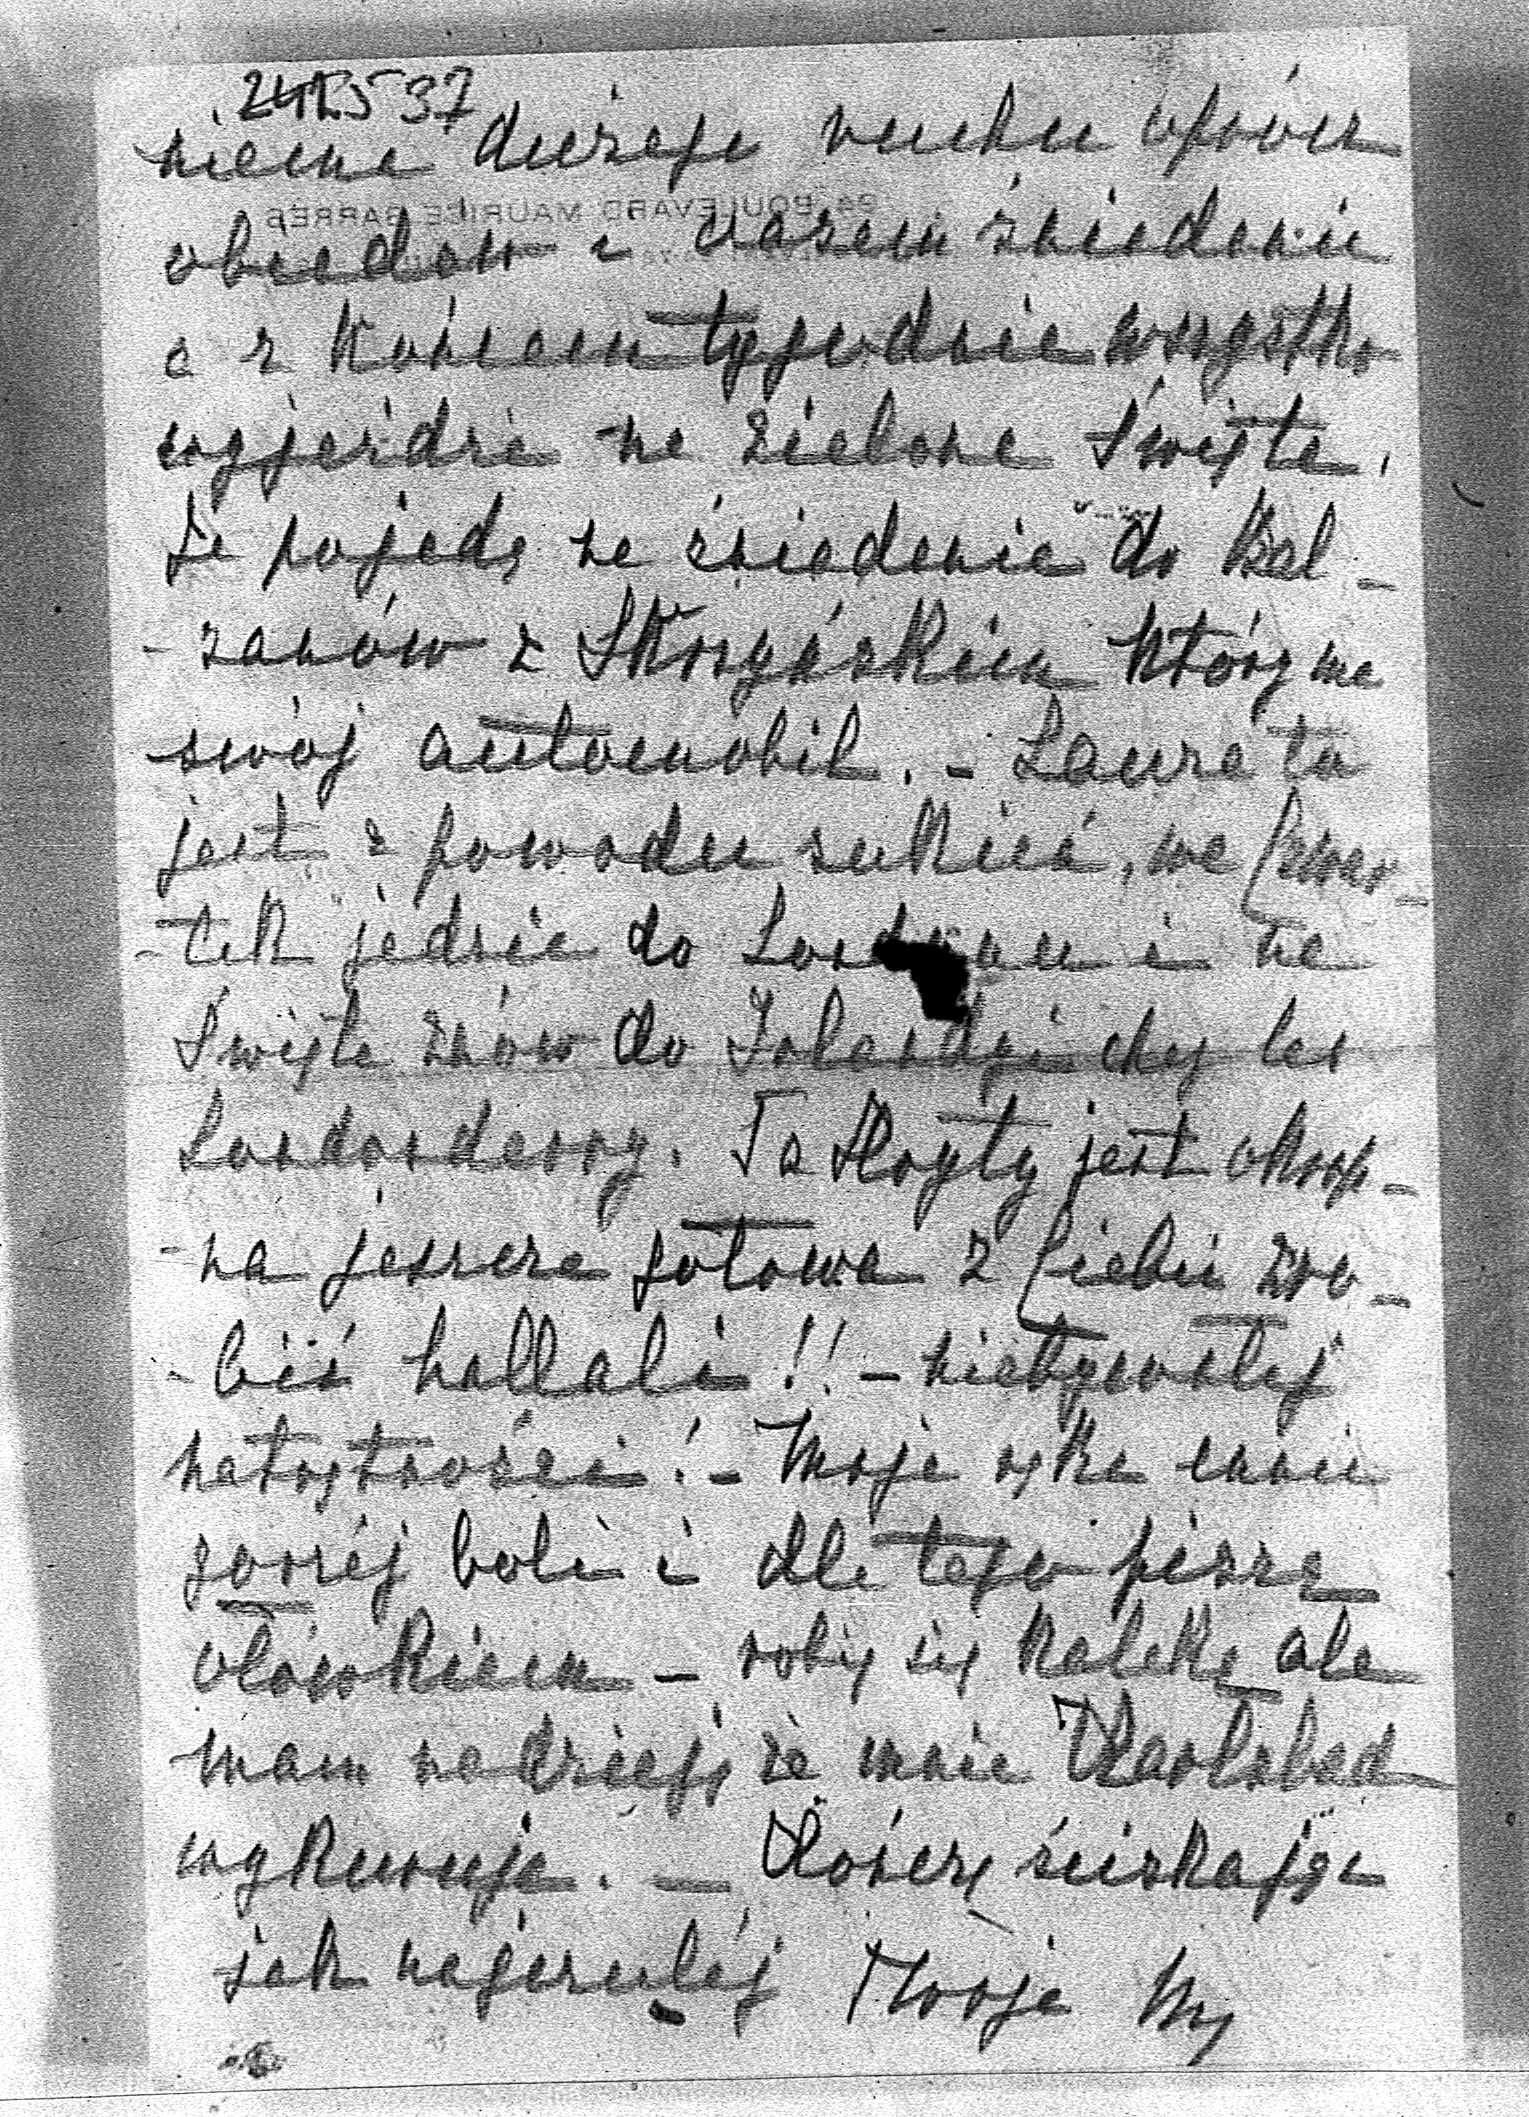 24.5 37
niema dużego ruchu oprócz
94, BOULEVARD MAURICE BARRÈS
obiadów i czasem śniadanie
a z końcem tygodnia wszystko
wyjeżdża na zielone Święta.
Ja pojadę na śniadanie do Bal-
-zanów z Skrzyńskim który ma
swój automobil. - Laura tu
jest z powodu sukień, we Czwar-
-tek jedzie do Londynu i na
Święta znów do Irlandji chez les
Londonderry. Ta Kryty jest okrop-
-na jeszcze gotowa z Ciebie zro-
-bić hallali!! - niebywałej
natrętności! - Moja ręka mnie
gorzej boli i dla tego piszę
ołówkiem - robię się kaleką ale
mam nadzieję że mnie Karlsbad
wykuruje. - Kończę ściskając
jak najczulej Twoja My